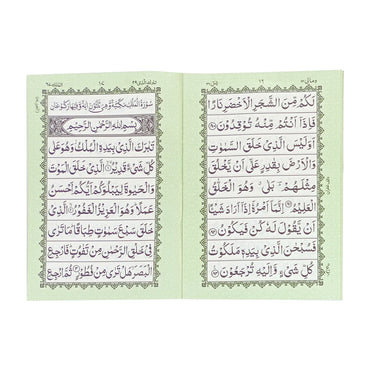 لَكُمْ مِّنَ الشَّجَرِ الْاَخْضَرِ نَارًا
فَاِذَاۤ اَنْتُمْ مِّنْهُ تُوْقِدُوْنَ
اَوَلَيْسَ الَّذِيْ خَلَقَ السَّمٰوٰتِ
وَالْاَرْضَ بِقٰدِرٍ عَلٰۤى اَنْ يَّخْلُقَ
مِثْلَهُمْ بَلٰى وَهُوَ الْخَلّٰقُ
الْعَلِيْمُ اِنَّمَاۤ اَمْرُهٗۤ اِذَاۤ اَرَادَ شَيْـًٔا
اَنْ يَّقُوْلَ لَهٗ كُنْ فَيَكُوْنُ
فَسُبْحٰنَ الَّذِيْ بِيَدِهٖ مَلَكُوْتُ
كُلِّ شَيْءٍ وَّاِلَيْهِ تُرْجَعُوْنَ
بِسْمِ اللهِ الرَّحْمٰنِ الرَّحِيْمِ
تَبٰرَكَ الَّذِيْ بِيَدِهِ الْمُلْكُ وَهُوَ عَلٰى
كُلِّ شَيْءٍ قَدِيْرُ الَّذِيْ خَلَقَ الْمَوْتَ
وَالْحَيٰوةَ لِيَبْلُوَكُمْ اَيُّكُمْ اَحْسَنُ
عَمَلًا وَهُوَ الْعَزِيْزُ الْغَفُوْرُ الَّذِيْ
خَلَقَ سَبْعَ سَمٰوٰتٍ طِبَاقًا مَا تَرٰى
فِيْ خَلْقِ الرَّحْمٰنِ مِنْ تَفٰوُتٍ فَارْجِعِ
الْبَصَرَ هَلْ تَرٰى مِنْ فُطُوْرٍ ثُمَّ ارْجِعِ